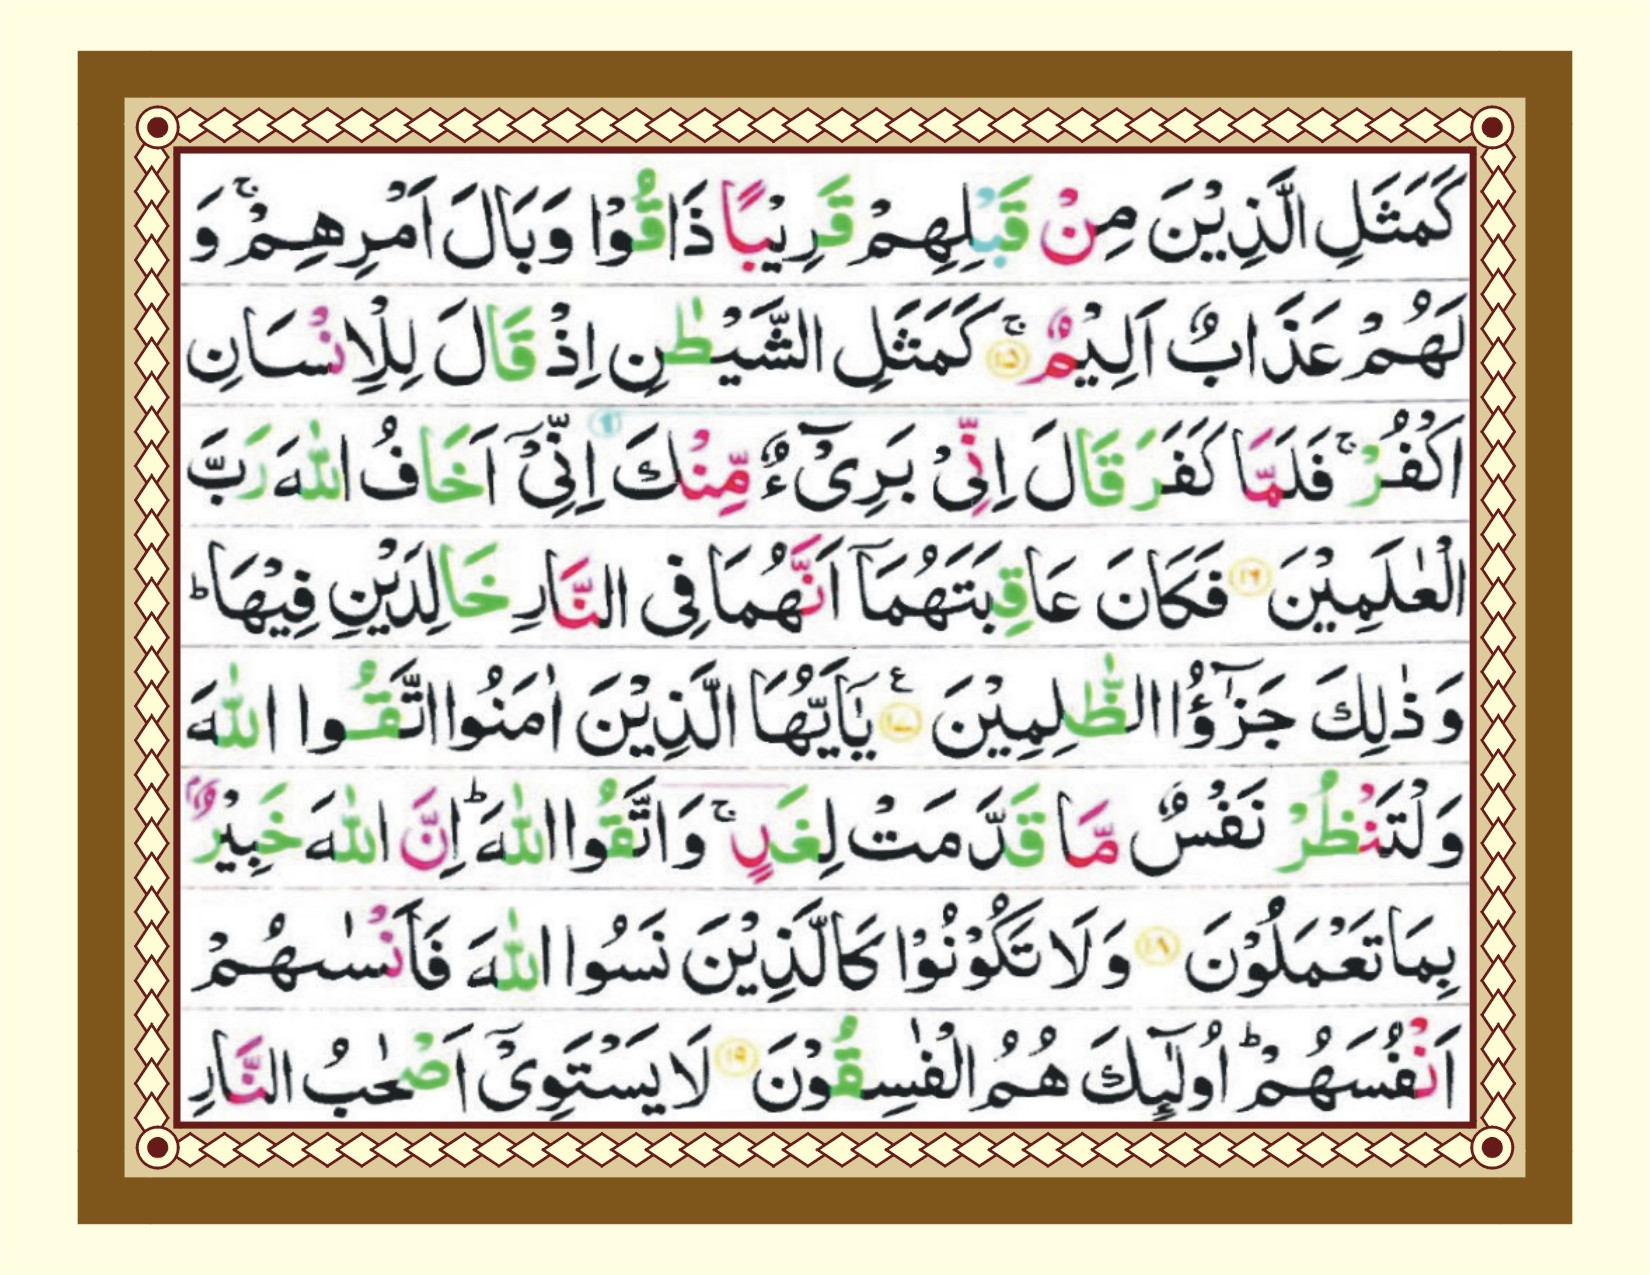 كَمَثَلِ الَّذِيْنَ مِنْ قَبْلِهِمْ قَرِيْبًا ذَاقُوْا وَبَالَ اَمْرِهِمْ ۚ وَ
لَهُمْ عَذَابٌ اَلِيْمٌ ۚ ﴿۱۵﴾ كَمَثَلِ الشَّيْطٰنِ اِذْ قَالَ لِلْاِنْسَانِ
اكْفُرْ ۚ فَلَمَّا كَفَرَ قَالَ اِنِّىْ بَرِىْٓءٌ مِّنْكَ اِنِّىْٓ اَخَافُ اللّٰهَ رَبَّ
الْعٰلَمِيْنَ ﴿۱۶﴾ فَكَانَ عَاقِبَتَهُمَآ اَنَّهُمَا فِى النَّارِ خَالِدَيْنِ فِيْهَا ؕ
وَ ذٰلِكَ جَزٰٓؤُا الظّٰلِمِيْنَ ﴿۱۷﴾ ع يٰٓاَيُّهَا الَّذِيْنَ اٰمَنُوا اتَّقُوا اللّٰهَ
وَلْتَنْظُرْ نَفْسٌ مَّا قَدَّمَتْ لِغَدٍ ۚ وَاتَّقُوا اللّٰهَ ؕ اِنَّ اللّٰهَ خَبِيْرٌۢ
بِمَا تَعْمَلُوْنَ ﴿۱۸﴾ وَلَا تَكُوْنُوْا كَالَّذِيْنَ نَسُوا اللّٰهَ فَاَنْسٰىهُمْ
اَنْفُسَهُمْ ؕ اُولٰٓئِكَ هُمُ الْفٰسِقُوْنَ ﴿۱۹﴾ لَا يَسْتَوِىْٓ اَصْحٰبُ النَّارِ